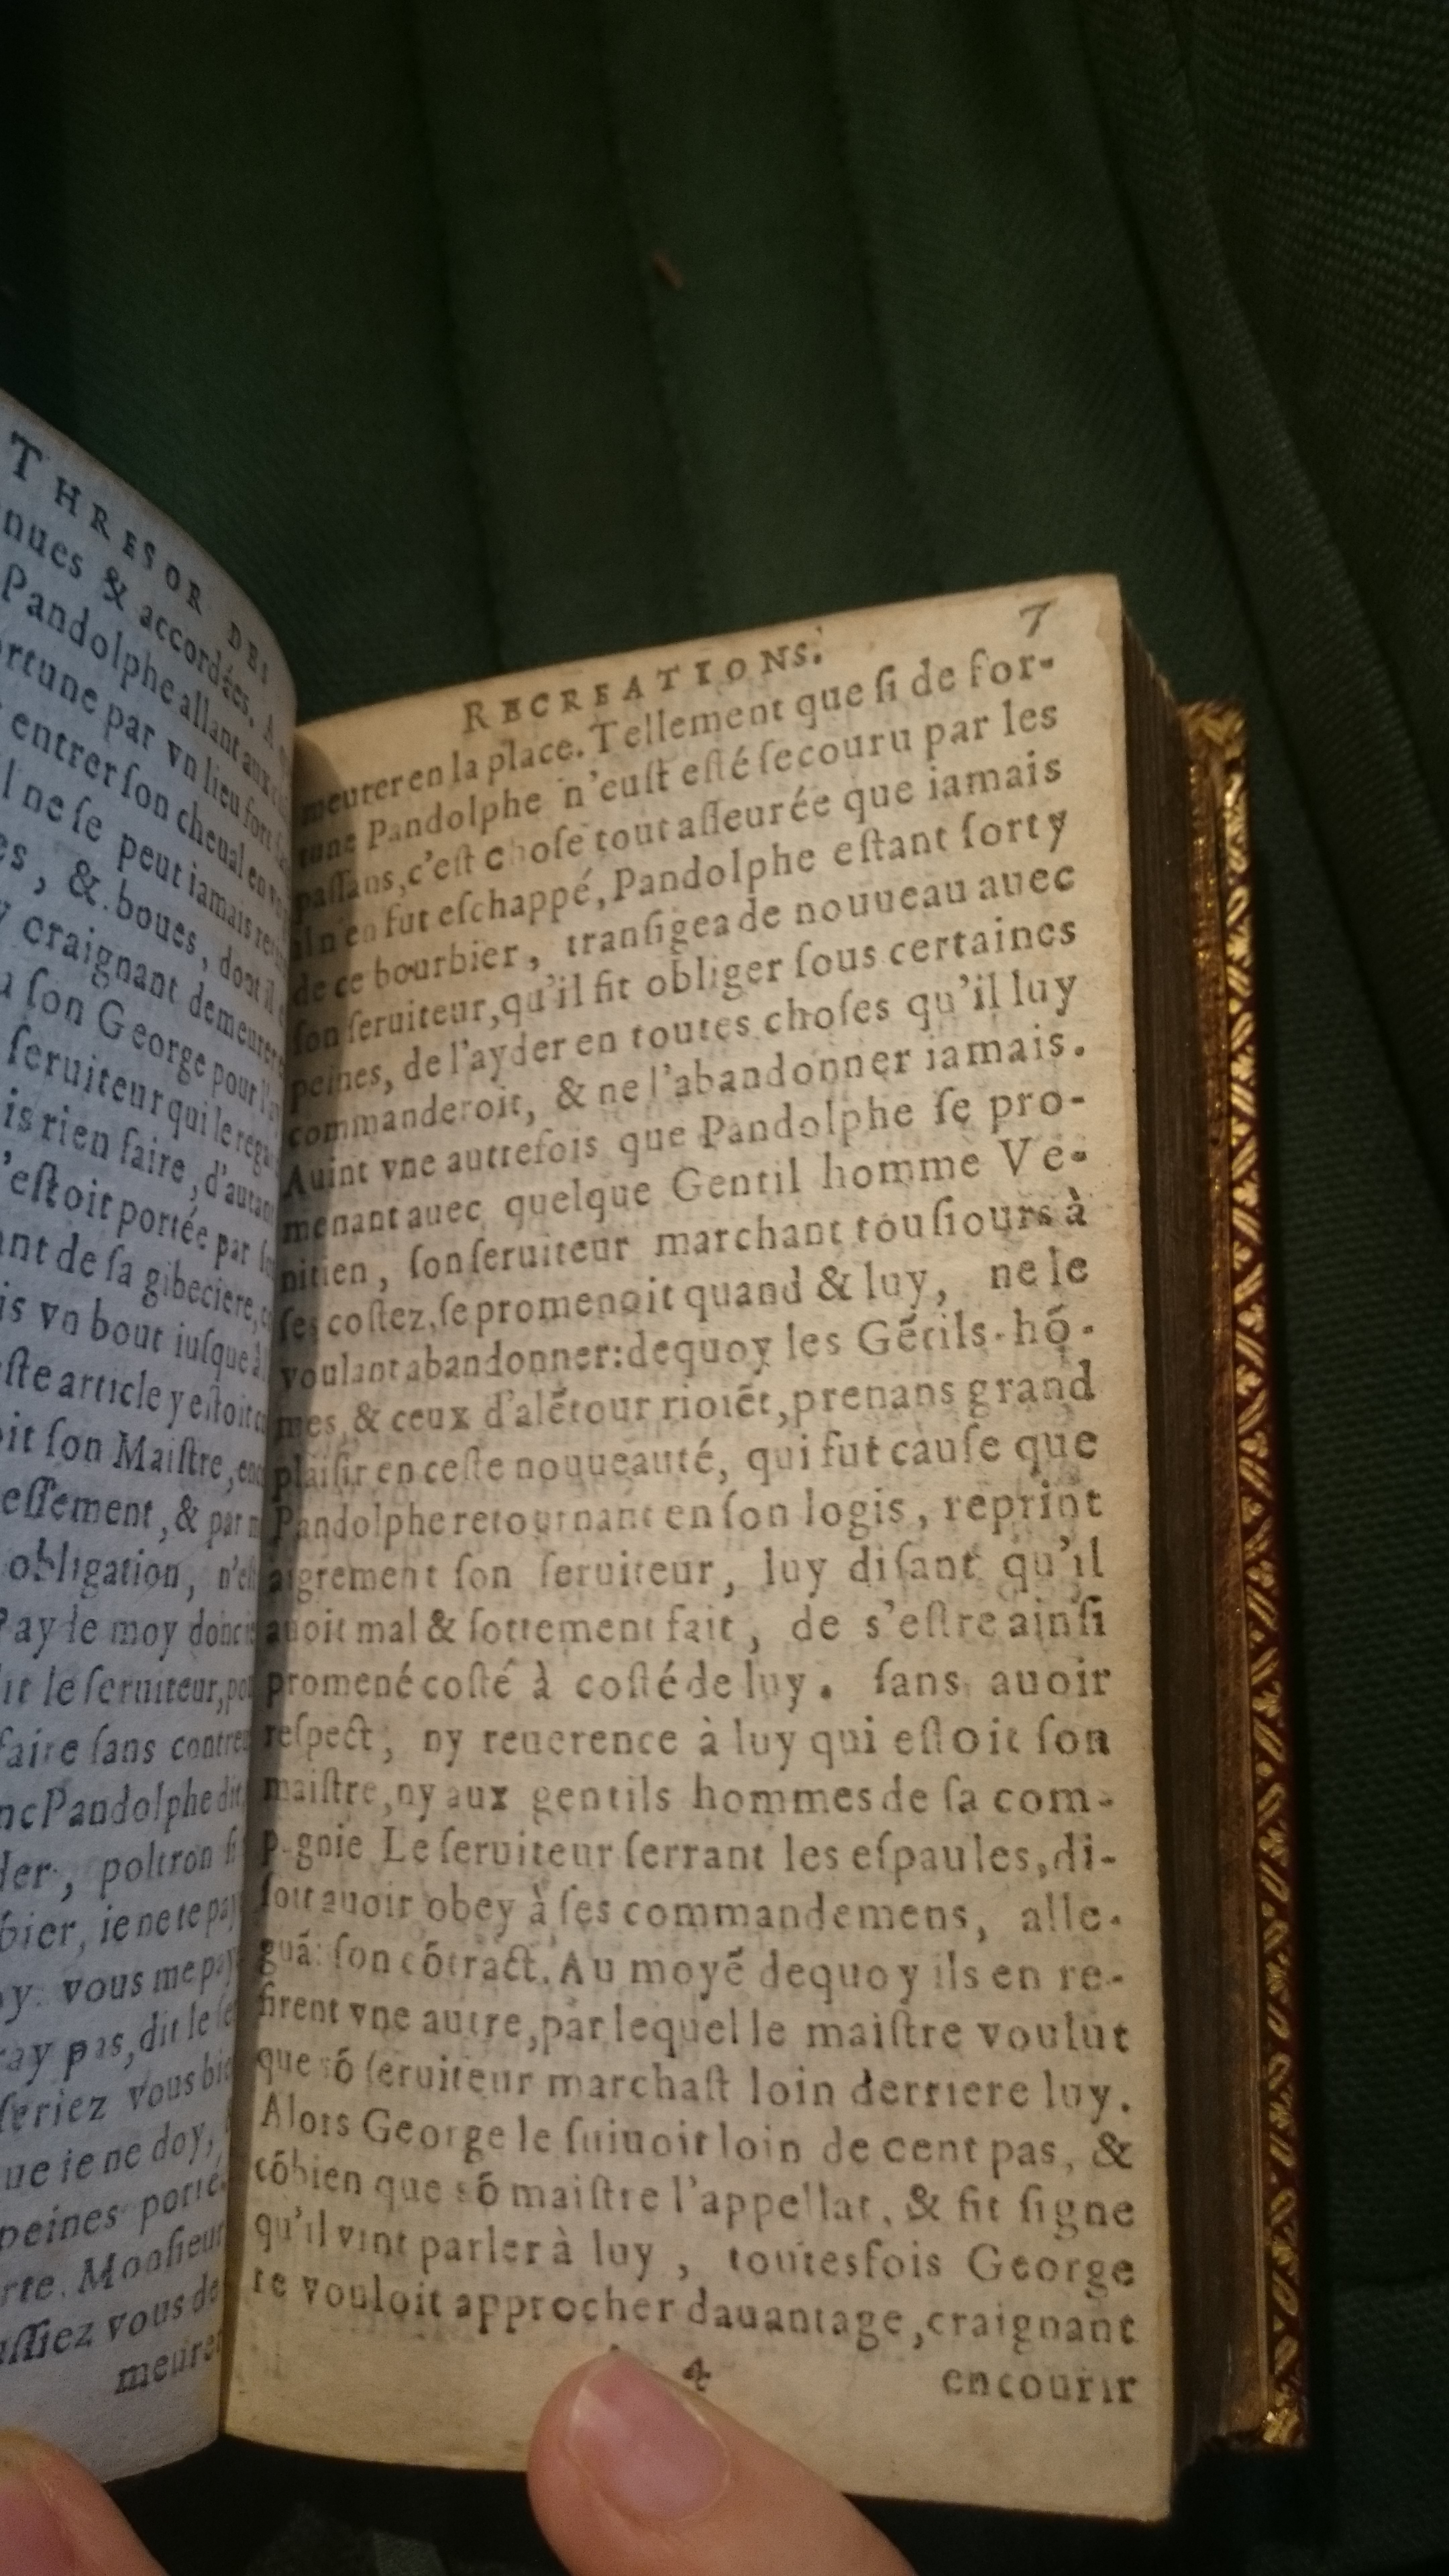 THRESOR DES
nues & accordées. A
Pandolphe allant aux
rtune par vn lieu fort
entrer ſon cheual en
l ne ſe peut iamais
es, & boues, dont il
craignant demeurer
ſon George pour
ſeruiteur qui le
is rien faire, d'autant
'eſtoit portée par
nt de ſa gibeciere,
is vn bout iuſque à
ſte article y eſtoit
it ſon Maiſtre,
eſſement, & par
obligation,
ay le moy donc
it le ſeruiteur,
faire ſans
nc Pandolphe dit,
der, poltron
bier, ie ne te
y vous me
ay pas, dit le
ſeriez vous
ue ie ne doy,
peines
rte. Monſieur
ſſiez vous de
meurer
RECREATIONS. 7
meurer en la place. Tellement que ſi de for-
tune Pandolphe n'euſt eſté ſecouru par les
paſſans, c'eſt choſe tout aſſeurée que iamais
il n'en fut eſchappé, Pandolphe eſtant ſorty
de ce bourbier, tranſigea de nouueau auec
ſon ſeruiteur, qu'il fit obliger ſous certaines
peines, de l'ayder en toutes choſes qu'il luy
commanderoit, & ne l'abandonner iamais.
Auint vne autrefois que Pandolphe ſe pro-
menant auec quelque Gentil homme Ve-
nitien, ſon ſeruiteur marchant touſiours à
ſes coſtez, ſe promenoit quand & luy, ne le
voulant abandonner: dequoy les Gẽtils-hõ-
mes, & ceux d'alẽtour rioiẽt, prenans grand
plaiſir en ceſte nouueauté, qui fut cauſe que
Pandolphe retournant en ſon logis, reprint
aigrement ſon ſeruiteur, luy diſant qu'il
auoit mal & ſottement fait, de s'eſtre ainſi
promené coſté à coſté de luy. ſans auoir
reſpect, ny reuerence à luy qui eſtoit ſon
maiſtre, ny aux gentils hommes de ſa com-
p gnie Le ſeruiteur ſerrant les eſpaules, di-
ſoit auoir obey à ſes commandemens, alle-
guãt ſon cõtract. Au moyẽ dequoy ils en re-
firent vne autre, par lequel le maiſtre voulut
que sõ ſeruiteur marchaſt loin derriere luy.
Alors George le ſuiuoit loin de cent pas, &
cõbien que sõ maiſtre l'appellat, & fit ſigne
qu'il vint parler à luy, toutesfois George
re vouloit approcher dauantage, craignant
4 encourir